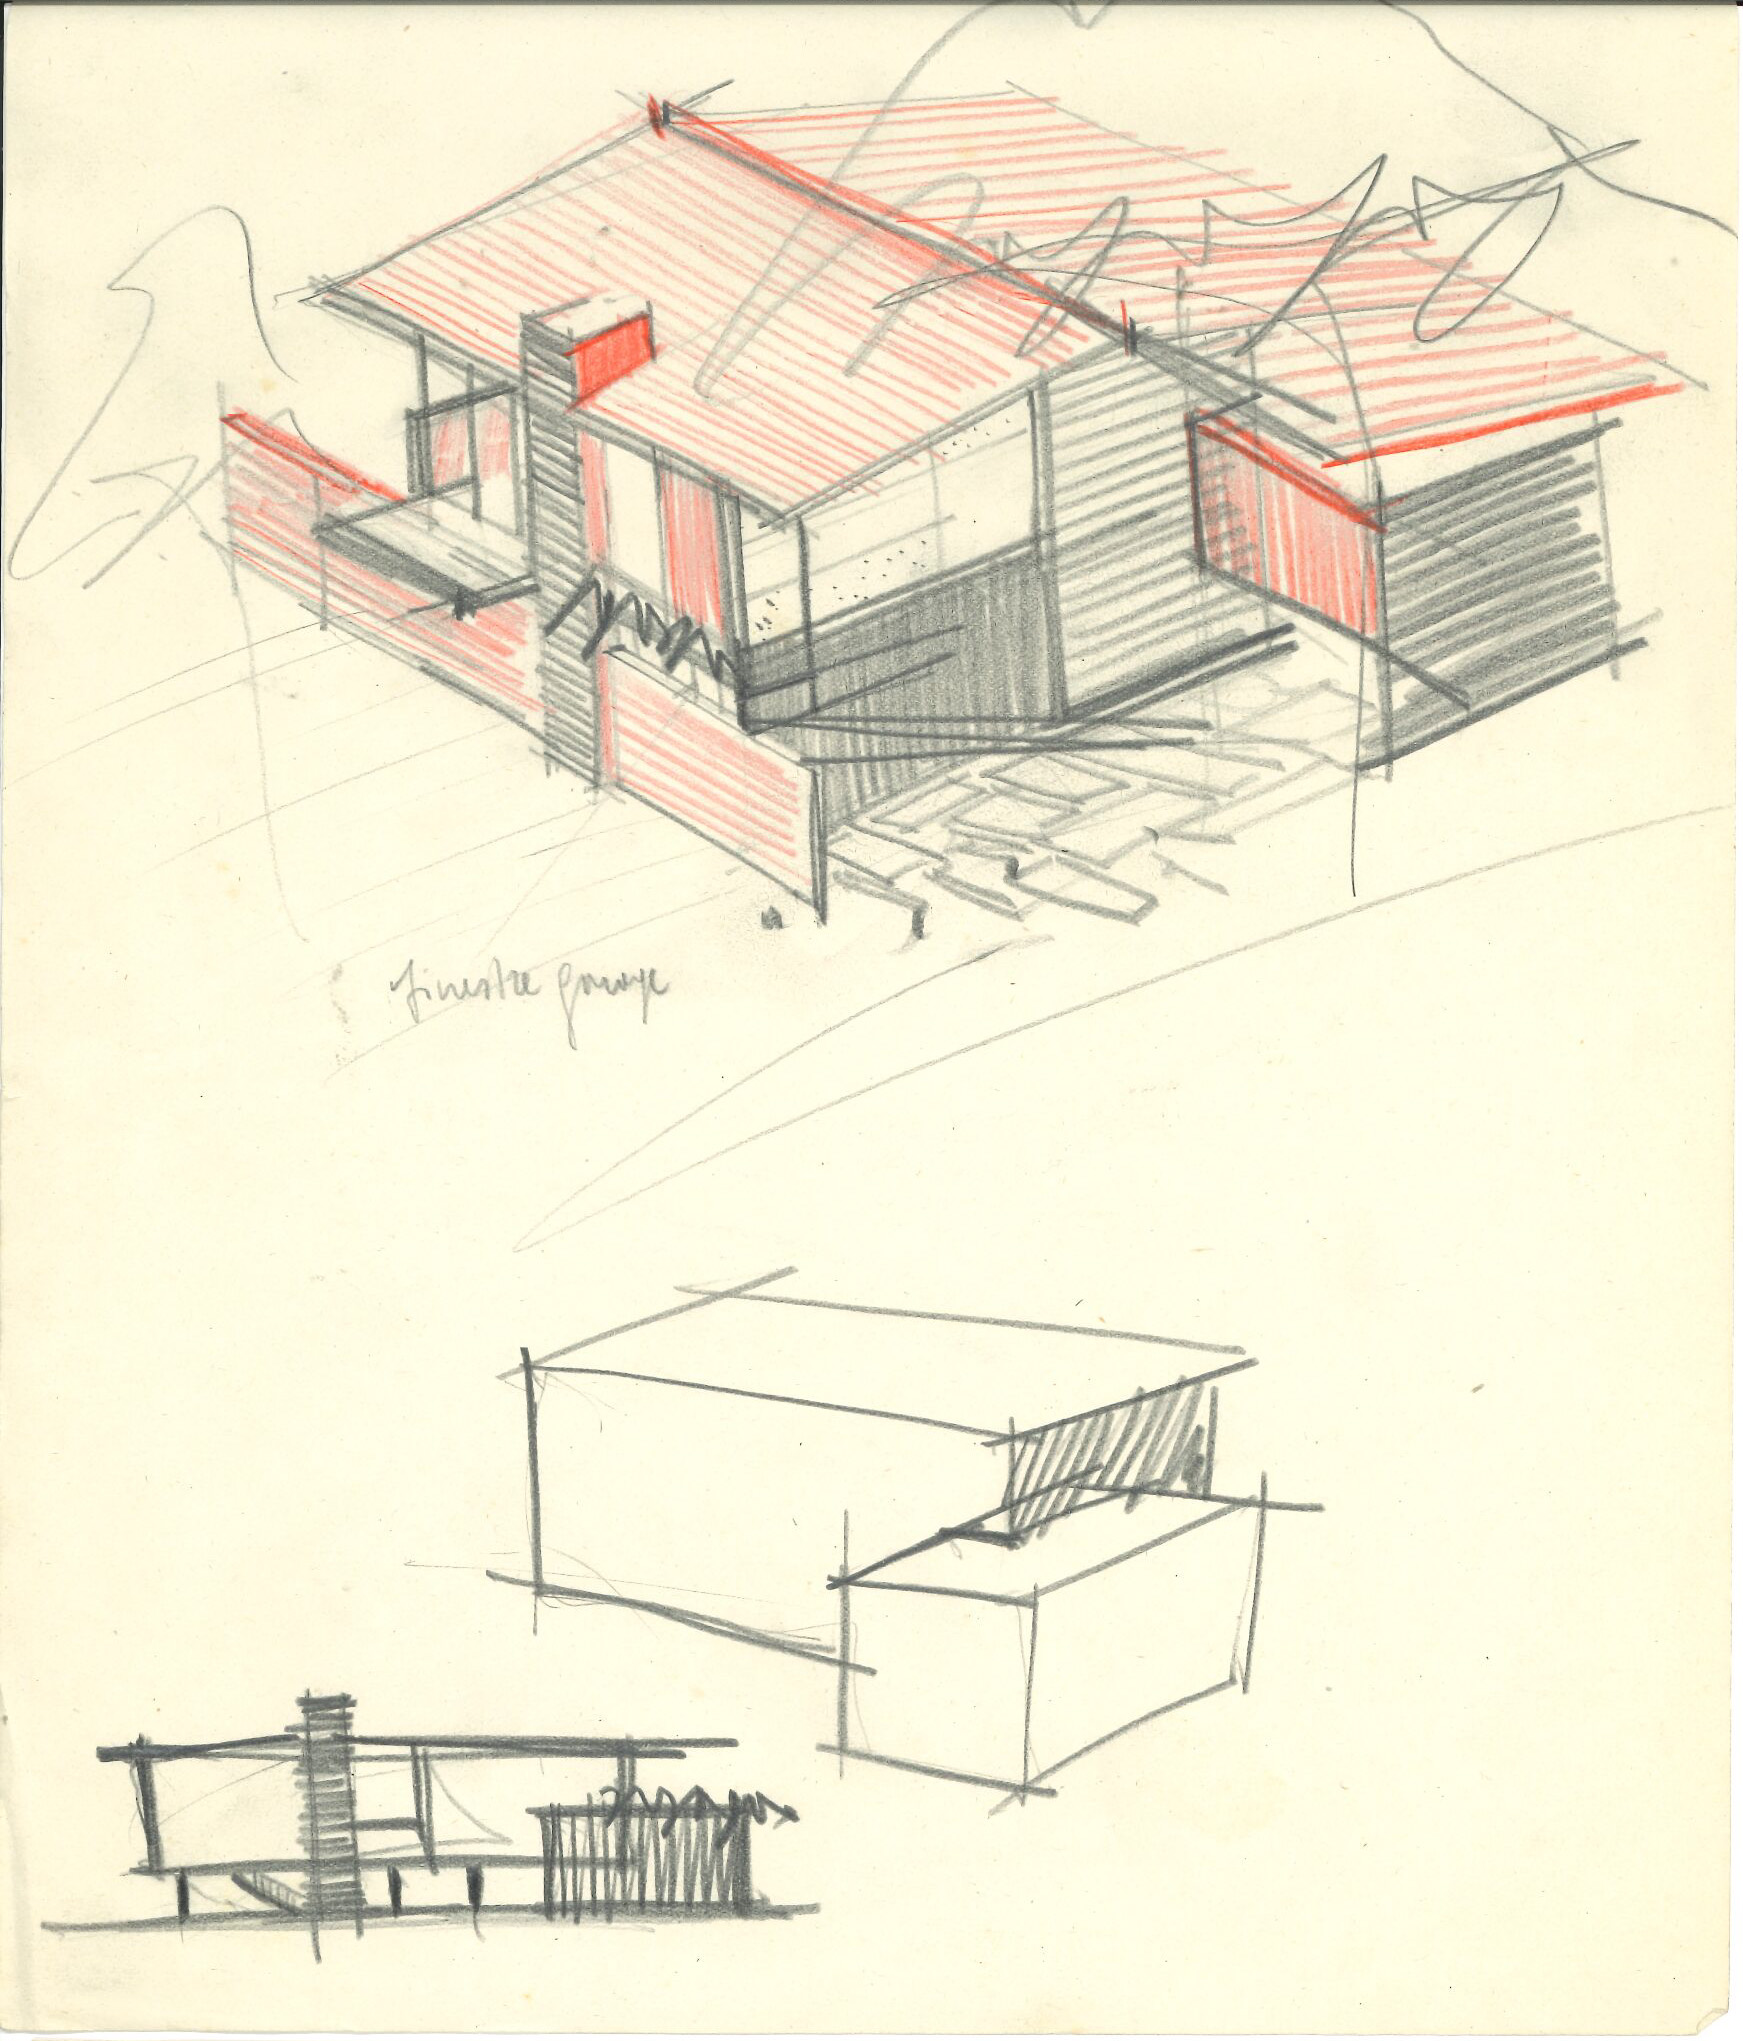 finestre garage